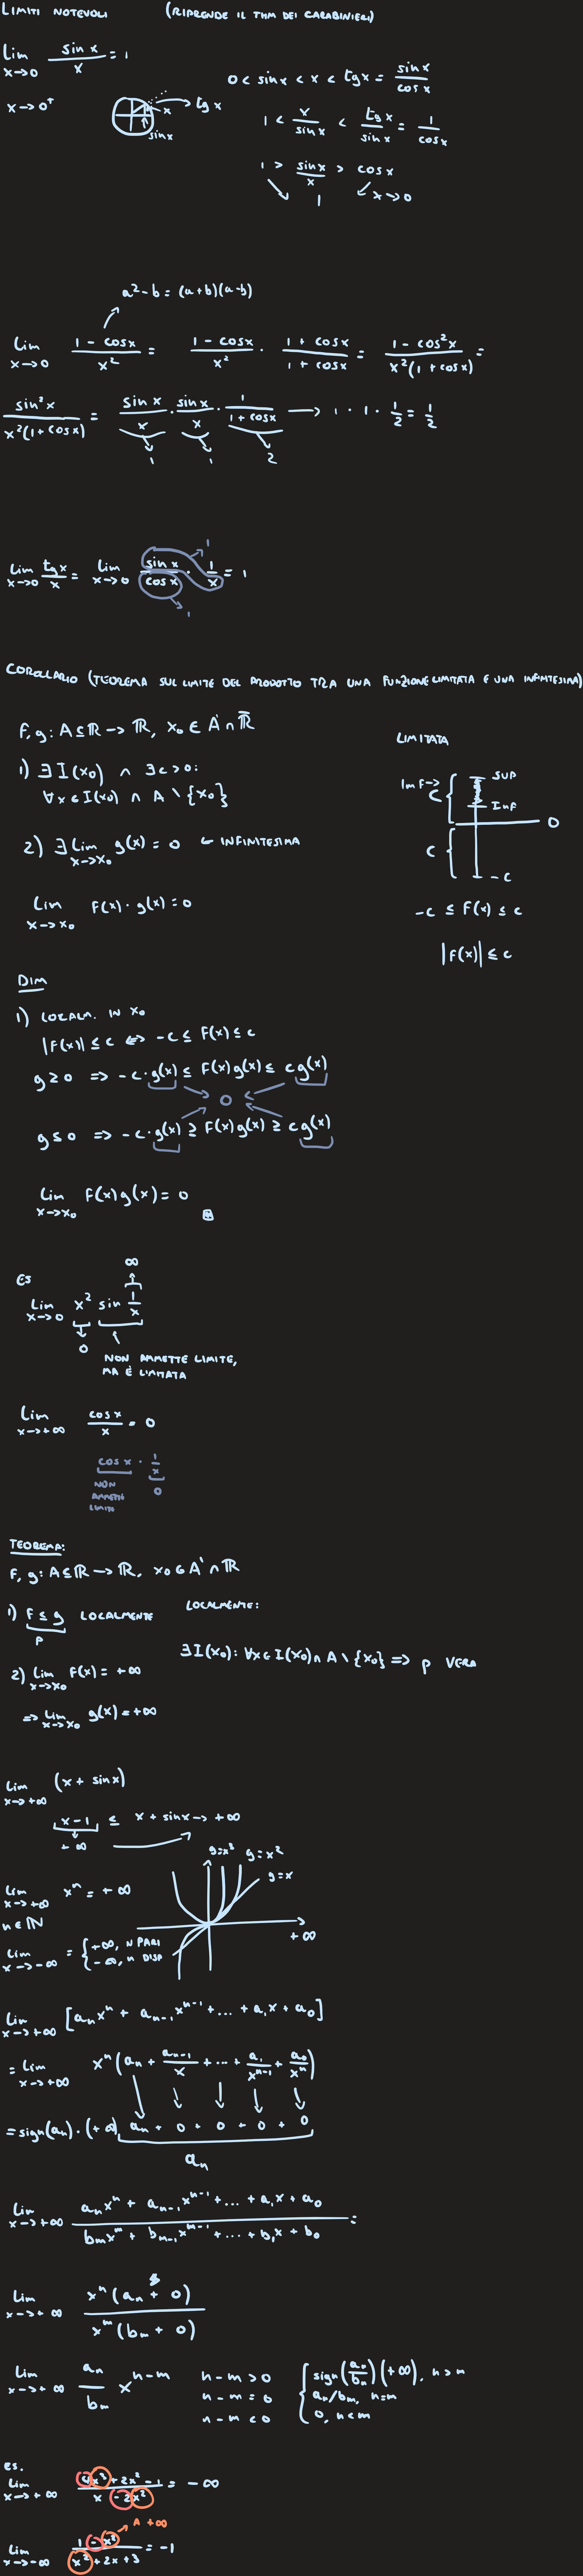 LIMITI NOTEVOLI (RIPRENDE IL THM DEI CARABINIERI)
Lim x→0 sin x / x = 1
x→0⁺
tg x
x
sin x
0 < sin x < x < tg x = sin x / cos x
1 < x / sin x < tg x / sin x = 1 / cos x
1 > sin x / x > cos x
1 x→0
a² - b = (a+b)(a-b)
Lim x→0 1 - cos x / x² = 1 - cos x / x² · 1 + cos x / 1 + cos x = 1 - cos² x / x²(1 + cos x) =
sin² x / x²(1 + cos x) = sin x / x · sin x / x · 1 / 1 + cos x → 1 · 1 · 1/2 = 1/2
1 1 2
Lim x→0 tg x / x = Lim x→0 sin x / cos x · 1 / x = 1
1
1
COROLLARIO (TEOREMA SUL LIMITE DEL PRODOTTO TRA UNA FUNZIONE LIMITATA E UNA INFINITESIMA)
F, g: A ⊆ ℝ → ℝ, x₀ ∈ A' ∩ ℝ̄
1) ∃ I(x₀) ∧ ∃ c > 0:
∀x ∈ I(x₀) ∩ A \ {x₀}
2) ∃ Lim x→x₀ g(x) = 0 ← INFINITESIMA
Lim x→x₀ F(x) · g(x) = 0
LIMITATA
Im F →
SUP
C
INF
0
C
-C
-c ≤ F(x) ≤ c
|F(x)| ≤ c
DIM
1) LOCALM. IN x₀
|F(x)| ≤ c ⟺ -c ≤ F(x) ≤ c
g ≥ 0 ⟹ -c · g(x) ≤ F(x)g(x) ≤ c g(x)
0
g ≤ 0 ⟹ -c · g(x) ≥ F(x)g(x) ≥ c g(x)
Lim x→x₀ F(x)g(x) = 0
ES
∞
Lim x→0 x² sin 1/x
0
NON AMMETTE LIMITE,
MA È LIMITATA
Lim x→+∞ cos x / x = 0
cos x · 1/x
NON
AMMETTE
LIMITE
0
TEOREMA:
F, g: A ⊆ ℝ → ℝ, x₀ ∈ A' ∩ ℝ
1) F ≤ g LOCALMENTE
P
LOCALMENTE:
∃ I(x₀): ∀x ∈ I(x₀) ∩ A \ {x₀} ⟹ p VERA
2) Lim x→x₀ F(x) = +∞
⟹ Lim x→x₀ g(x) = +∞
Lim x→+∞ (x + sin x)
x - 1 ≤ x + sin x → +∞
+∞
Lim x→+∞ xⁿ = +∞
n ∈ ℕ
y=x³ y=x²
y=x
+∞
Lim x→-∞ = { +∞, N PARI
-∞, n DISP
Lim x→+∞ [aₙxⁿ + aₙ₋₁xⁿ⁻¹ + ... + a₁x + a₀]
= Lim x→+∞ xⁿ(aₙ + aₙ₋₁/x + ... + a₁/xⁿ⁻¹ + a₀/xⁿ)
= sign(aₙ) · (+∞) aₙ + 0 + 0 + 0 + 0
aₙ
Lim x→+∞ aₙxⁿ + aₙ₋₁xⁿ⁻¹ + ... + a₁x + a₀ / bₘxᵐ + bₘ₋₁xᵐ⁻¹ + ... + b₁x + b₀ =
Lim x→+∞ xⁿ(aₙ + 0) / xᵐ(bₘ + 0)
Lim x→+∞ aₙ / bₘ xⁿ⁻ᵐ
n - m > 0
n - m = 0
n - m < 0
{ sign(aₙ/bₙ)(+∞), n > m
aₙ/bₘ, n=m
0, n<m
ES.
Lim x→+∞ 4x³ + 2x² - 1 / x - 2x² = -∞
A +∞
Lim x→-∞ 1 - x² / x² + 2x + 3 = -1